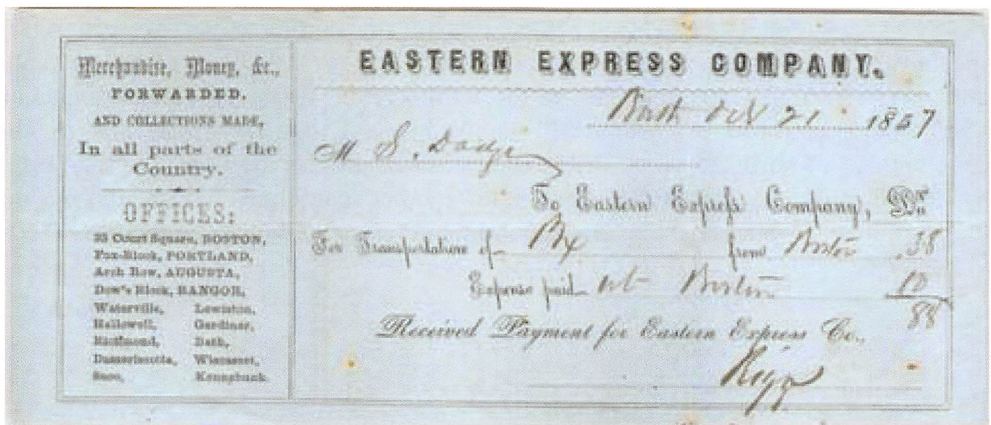 Merchandise, Money, &c.,
FORWARDED,
AND COLLECTIONS MADE,
In all parts of the
Country.
OFFICES:
35 Court Square, BOSTON,
Fox-Block, PORTLAND,
Arch Row, AUGUSTA,
Dow's Block, BANGOR,
Waterville, Lewiston,
Hallowell, Gardiner,
Richmond, Bath,
Damariscotta, Wiscasset,
Saco, Kennebunk.
EASTERN EXPRESS COMPANY.
Bath Oct 21 1857
M S. Dodge
To Eastern Express Company, Dr.
For Transportation of Bx from Boston .38
Expense paid at Boston
88
Received Payment for Eastern Express Co.,